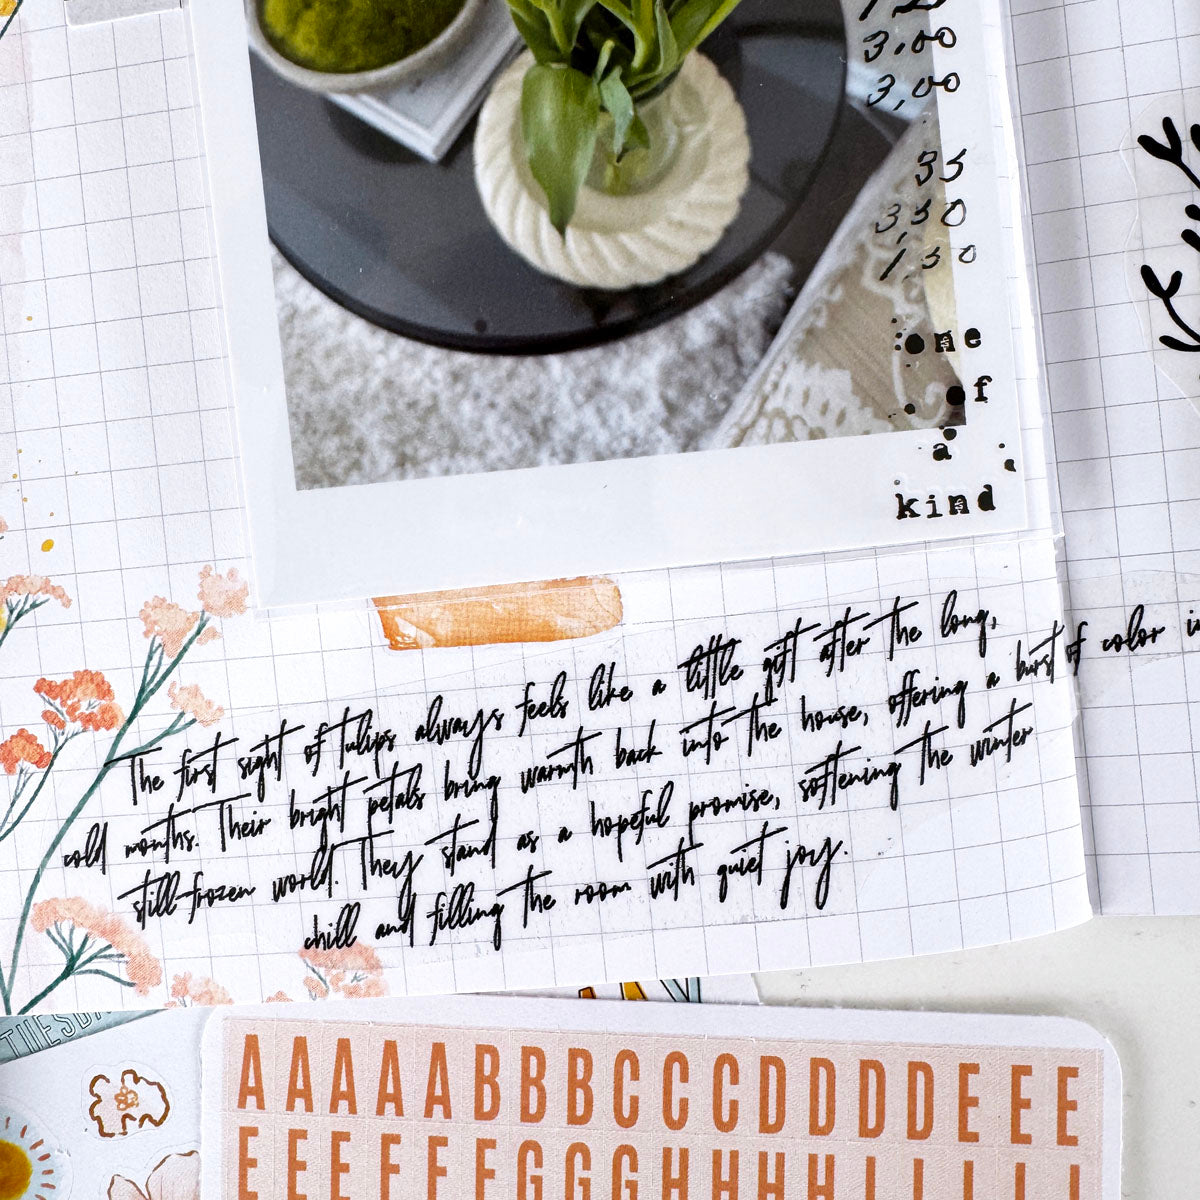 3.00
3,00
35
3,50
1,50
one
of
a
kind
The first sight of tulips always feels like a little gift after the long,
cold months. Their bright petals bring warmth back into the house, offering a burst of color in
still-frozen world. They stand as a hopeful promise, softening the winter
chill and filling the room with quiet joy.
TUESDAY
A A A A A B B B C C C D D D D E E E
E E E F F F G G G H H H H I I I I I